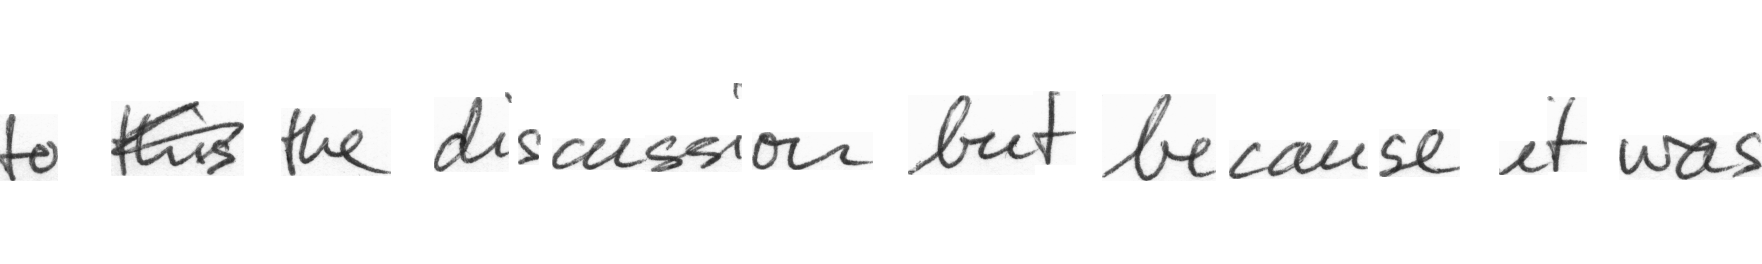 to this the discussion but because it was